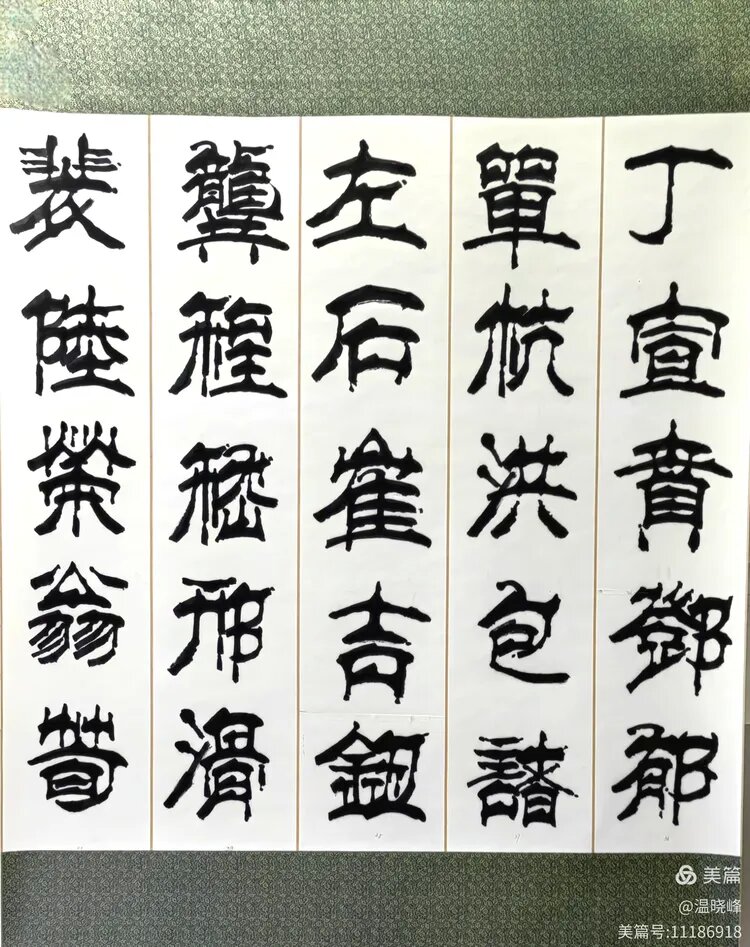 丁宣賁鄧郁
單杭洪包諸
左石崔吉鈕
龔程嵇邢滑
裴陸榮翁荀
美篇
@温晓峰
美篇号:11186918